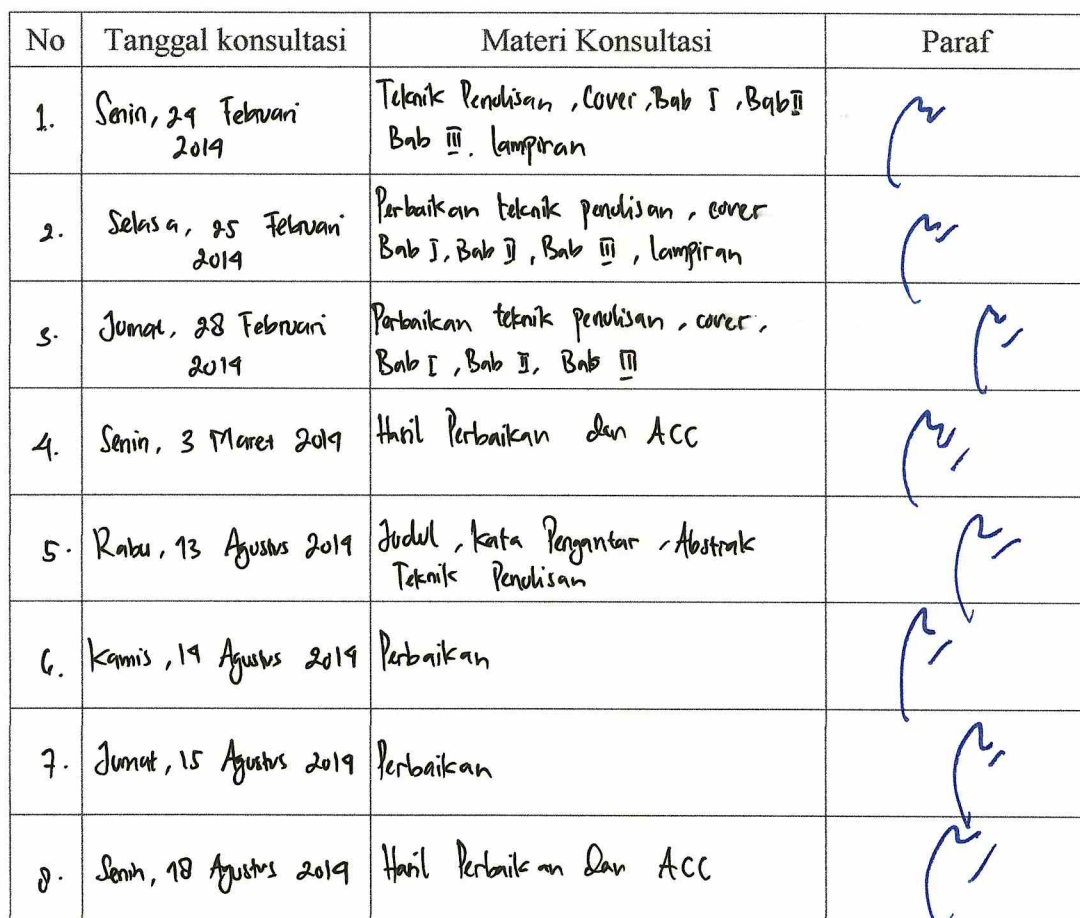 No Tanggal konsultasi Materi Konsultasi Paraf
1. Senin, 24 Februari Teknik Penulisan, Cover, Bab I, Bab II
2014 Bab III. lampiran
2. Selasa, 25 Februari Perbaikan teknik penulisan, cover
2014 Bab I, Bab II, Bab III, lampiran
3. Jumat, 28 Februari Perbaikan teknik penulisan, cover,
2014 Bab I, Bab II, Bab III
4. Senin, 3 Maret 2014 Hasil Perbaikan dan ACC
5. Rabu, 13 Agustus 2014 Judul, Kata Pengantar, Abstrak
Teknik Penulisan
6. Kamis, 14 Agustus 2014 Perbaikan
7. Jumat, 15 Agustus 2014 Perbaikan
8. Senin, 18 Agustus 2014 Hasil Perbaikan Dan ACC